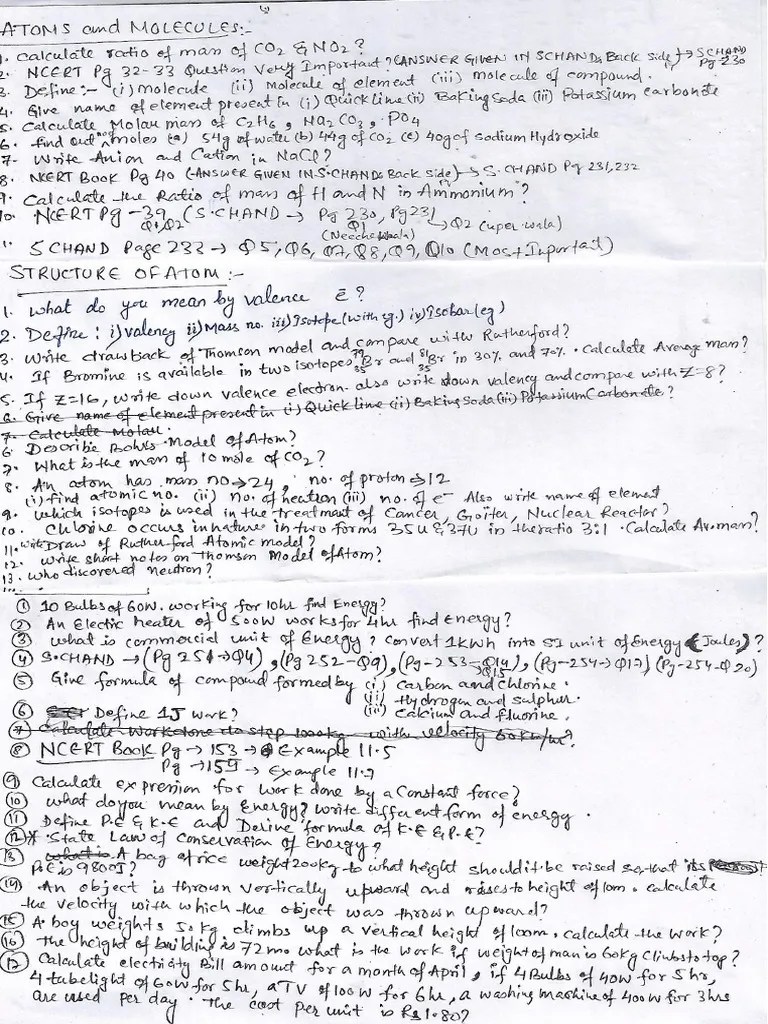 ATOMS and MOLECULES:-
1. Calculate ratio of mass of CO2 & NO2?
2. NCERT Pg 32-33 Question Very Important? (ANSWER GIVEN IN SCHANDs Back side) → SCHAND Pg 230
3. Define:- (i) molecule (ii) molecule of element (iii) molecule of compound.
4. Give name of element present in (i) Quick line (ii) Baking Soda (iii) Potassium carbonate
5. Calculate Molau mass of C2H6, Na2CO3, PO4
6. find out no. moles (a) 54g of water (b) 44g of CO2 (c) 40g of Sodium Hydroxide
7- Write Anion and Cation in NaCl?
8. NKERT Book Pg 40 (-ANSWER GIVEN IN S.CHANDs Back side) → S.CHAND Pg 231,232
9. Calculate the Ratio of mass of H and N in Ammonium?
10. NCERT Pg -39 (S.CHAND → Pg 230, Pg 231
Q1,Q2 Q1 → Q2 (uper wala)
(Neeche wala)
11. S CHAND Page 233 → Q5, Q6, Q7, Q8, Q9, Q10 (Most Important)
STRUCTURE OF ATOM:-
1. What do you mean by valence ē?
2. Define: i) valency ii) Mass no. iii) Isotope (with eg.) iv) Isobar (eg)
3. Write drawback of Thomson model and compare with Rutherford?
4. If Bromine is available in two isotopes 79 35 Br and 81 35 Br in 30% and 70%. Calculate Average mass?
5. If Z=16, write down valence electron. also write down valency and compare with Z=8?
a. Give name of element present in (i) Quick line (ii) Baking Soda (iii) Potassium Carbonate?
7. Calculate Molau.
6. Describe Bohrs Model of Atom?
7. What is the mass of 10 mole of CO2?
8. An atom has mass no → 24, no. of proton → 12
(i) find atomic no. (ii) no. of neutron (iii) no. of e- Also write name of element
9. Which isotopes is used in the treatment of Cancer, Goiter, Nuclear Reactor?
10. Chlorine occurs in nature in two forms 35u & 37u in the ratio 3:1. Calculate Av. mass?
11. Write Draw of Rutherford Atomic model?
12. Write short notes on Thomson Model of Atom?
13. Who discovered neutron?
1 10 Bulbs of 60W. working for 10hr find Energy?
2 An Electric heater of 500W works for 4hr find Energy?
3 What is commercial unit of Energy, convert 1kWh into SI unit of Energy (Joules)?
4 S.CHAND → (Pg 251 → Q4), (Pg 252 - Q9), (Pg-253 → Q14, Q15), (Pg-254 → Q17) (Pg-254-Q20)
5 Give formula of compound formed by (i) Carbon and chlorine.
(ii) Hydrogen and sulphur.
6 Define 1J Work? (iii) Calcium and fluorine.
7 Calculate Work done to stop 1000kg with velocity 60km/hr?
8 NCERT Book Pg → 153 → Example 11.5
Pg → 159 → Example 11.9
9 Calculate expression for work done by a Constant force?
10 What do you mean by Energy? Write different form of energy.
11 Define P.E & K.E and Derive formula of K.E & P.E?
12 * State Law of Conservation of Energy?
13 what is A bag of rice weight 200kg to what height should it be raised so that its
P.E is 9800J?
14 An object is thrown vertically upward and rises to height of 10m. calculate
the velocity with which the object was thrown upward?
15 A boy weights 50kg, climbs up a vertical height of 100m. calculate the work?
16 The height of building is 72m what is the work if weight of man is 60kg climbs to top?
17 Calculate electricity Bill amount for a month of April, if 4 Bulbs of 40W for 5hr,
4 tubelight of 60W for 5hr, a TV of 100W for 6hr, a washing machine of 400W for 3hrs
are used per day. The cost per unit is Rs 1.80?